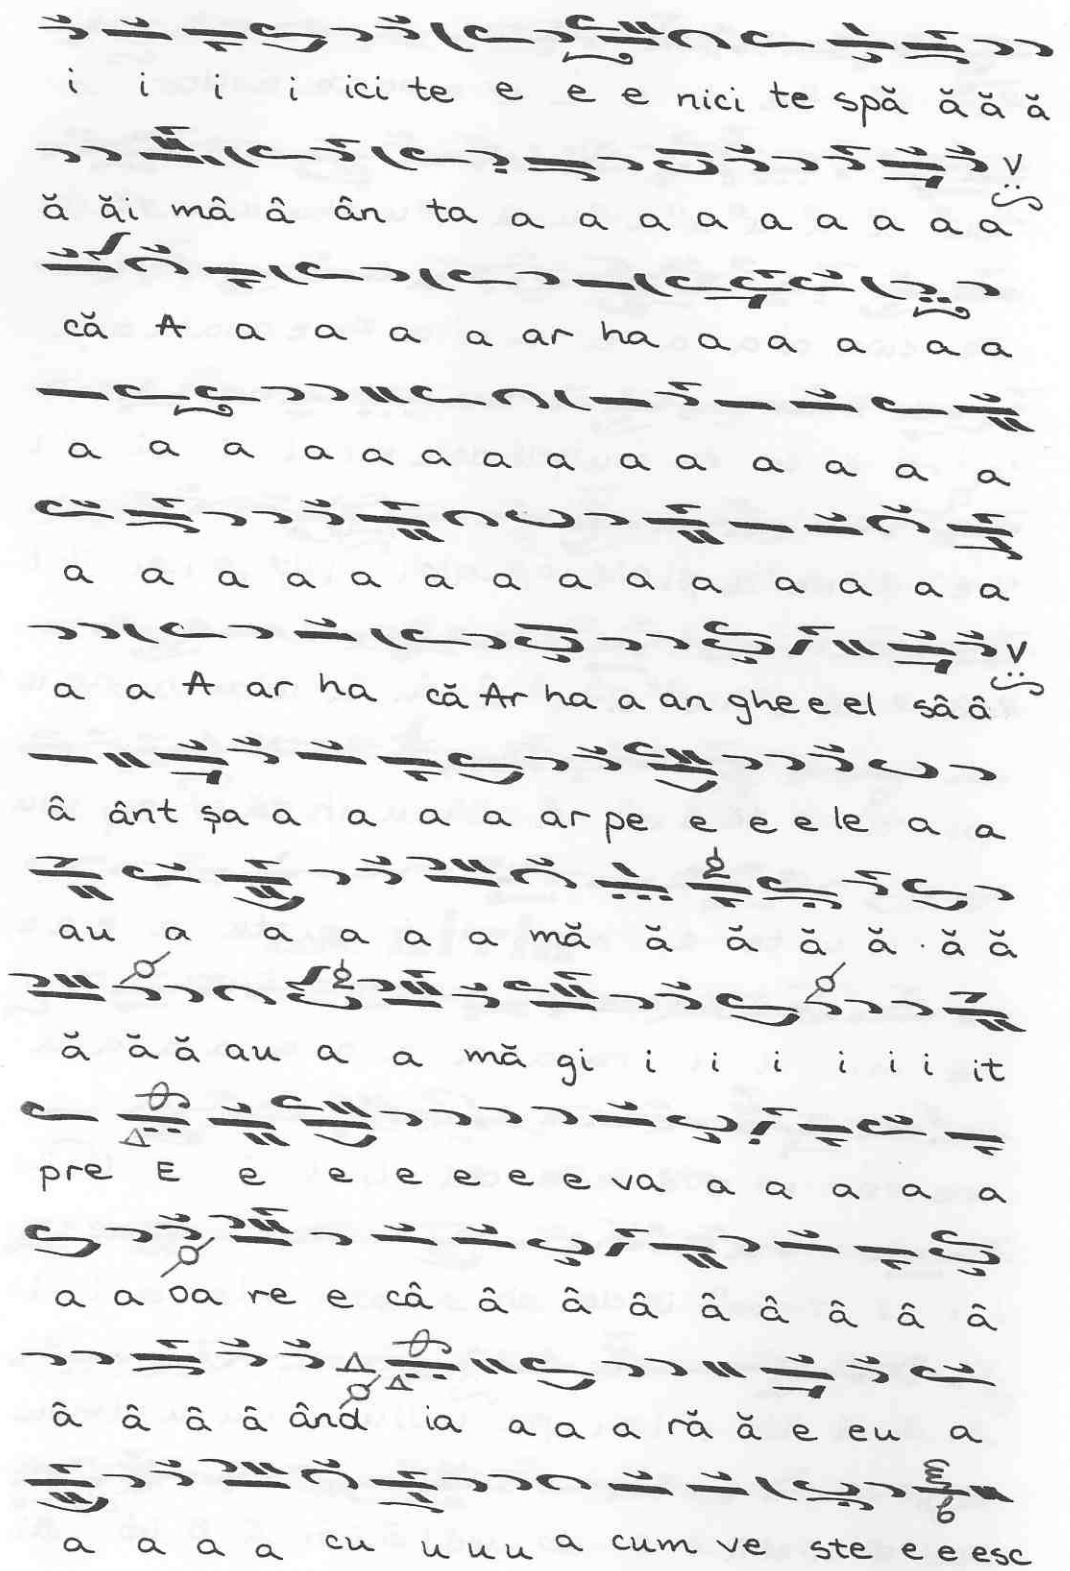 i i i i ici te e e e nici te spă ă ă ă
ă ăi mâ â ân ta a a a a a a a a
că A a a a a ar ha a a a a a
a a a a a a a a a a a a a a
a a a a a a a a a a a a a a
a a A ar ha că Ar ha a an ghe e el sâ â
â ânt șa a a a a ar pe e e e le a a
au a a a a a mă ă ă ă ă ă ă
ă ă ă au a a mă gi i i i i i i it
pre E e e e e e e va a a a a a
a a oa re e câ â â â â â â â â
â â â â ând ia a a a ră ă e eu a
a a a a cu u u u a cum ve ste e e esc